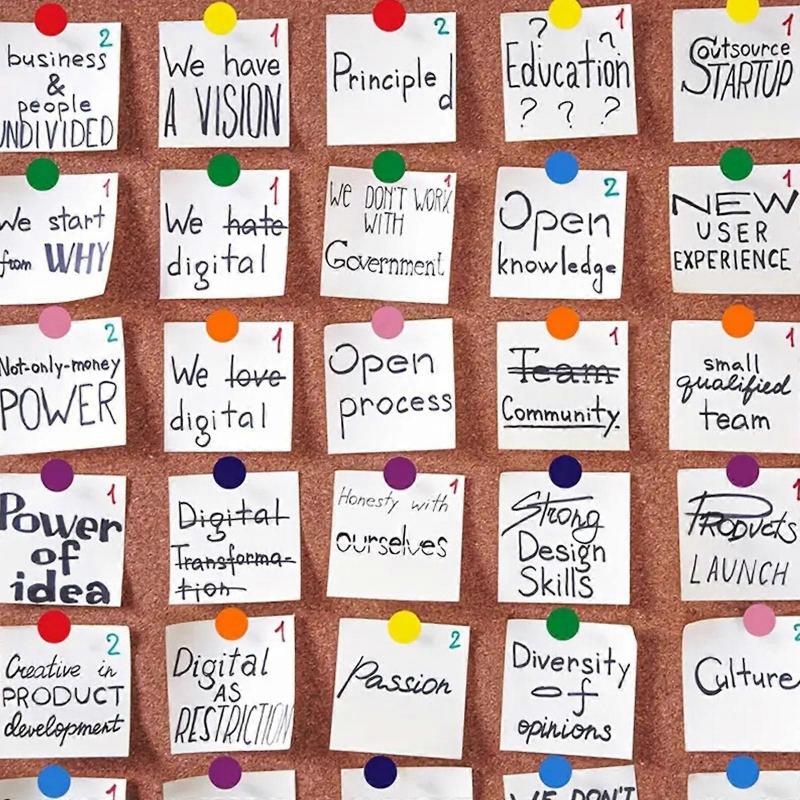 2
business
&
people
UNDIVIDED
1
We have
A VISION
2
Principled
1
?
?
Education
? ? ?
1
Outsource
STARTUP
1
We start
from WHY
1
We hate
digital
1
WE DON'T WORK
WITH
Government
2
Open
knowledge
1
NEW
USER
EXPERIENCE
2
Not-only-money
POWER
1
We love
digital
Open
process
1
Team
Community.
1
small
qualified
team
1
Power
of
idea
Digital
Transforma-
tion
1
Honesty with
ourselves
Strong
Design
Skills
1
PRODUCTS
LAUNCH
2
Creative in
PRODUCT
development
1
Digital
AS
RESTRICTION
2
Passion
Diversity
of
opinions
2
Culture
1
1
WE DON'T
1